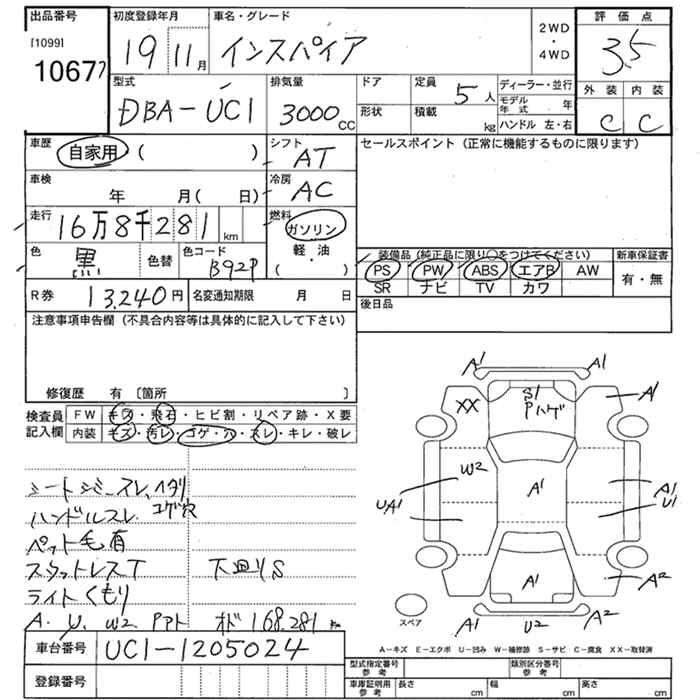 出品番号
[1099]
10677
初度登録年月
19 11月
車名・グレード
インスパイア
2WD
・
4WD
評価点
3.5
外装 内装
C C
型式
DBA-UC1
排気量
3000cc
ドア
形状
定員
5人
積載
kg
ディーラー・並行
モデル年式 年
ハンドル 左・右
車歴
自家用 ( )
シフト
AT
セールスポイント (正常に機能するものに限ります)
車検
年 月( 日)
冷房
AC
走行
16万8千281km
燃料
ガソリン
軽・油
( )
色
黒
色替
色コード
B92P
装備品 (純正品に限り○をつけてください)
PS PW ABS エアB AW
SR ナビ TV カワ
新車保証書
有・無
R券
13,240円
名変通知期限 月 日
後日品
注意事項申告欄 (不具合内容等は具体的に記入して下さい)
修復歴 有 〔箇所 〕
検査員
記入欄
FW キズ・飛石・ヒビ割・リペア跡・X要
内装 キズ・汚レ・コゲ・穴・スレ・キレ・破レ
シートシミ・スレ、ヘタリ
ハンドルスレ コゲ穴
ペット毛有
スタットレスT 下廻りS
ライトくもり
A. U. W2 Pアト オド168,281km
A1 A1
XX
S1
Pハゲ
A1
W2
A1
UA1
A1
U1
A1
A2
A1 U2 A2
スペア
A-キズ E-エクボ U-凹み W-補修跡 S-サビ C-腐食 XX-取替済
車台番号
UC1-1205024
登録番号
型式指定番号
参考
類別区分番号
参考
車庫証明用
参考
長さ cm 幅 cm 高さ cm